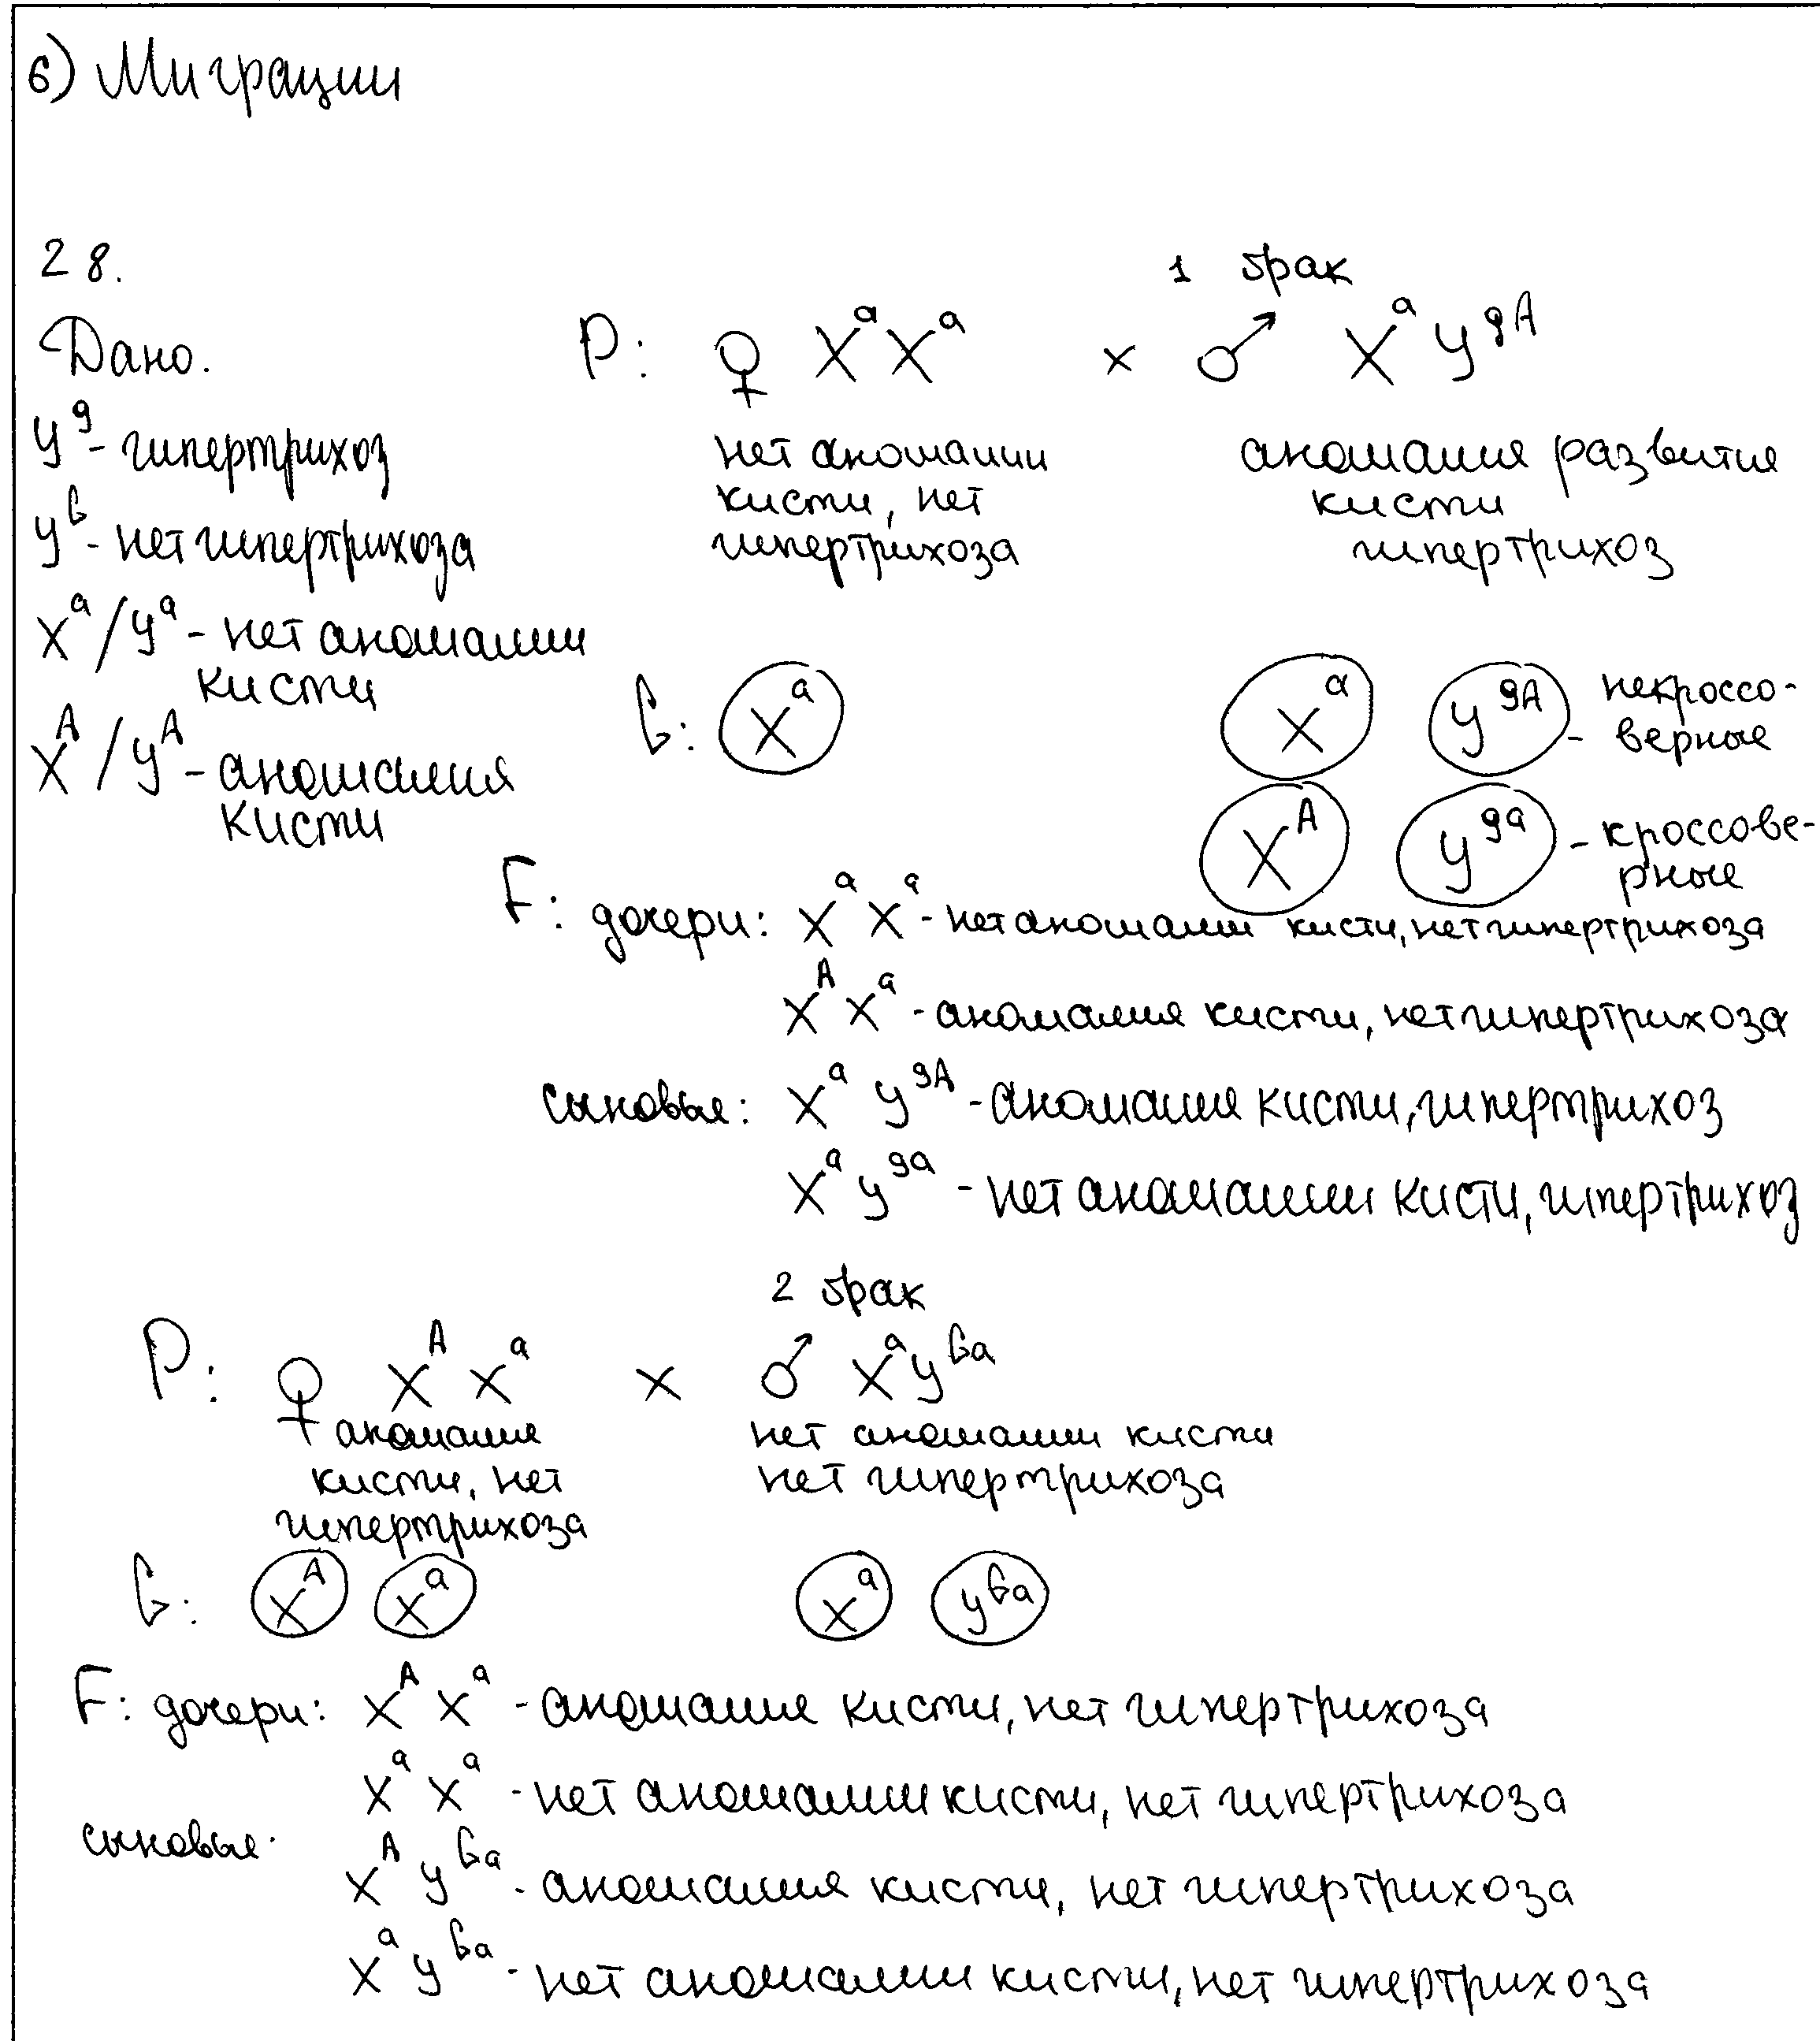 6) Миграции
28.
1 брак
Дано.
P: ♀ XᵃXᵃ × ♂ Xᵃ Y^gA
Y^g - гипертрихоз
нет аномалии
кисти, нет
гипертрихоза
аномалия развития
кисти
гипертрихоз
Y^G - нет гипертрихоза
X^a/Y^a - нет аномалии
кисти
X^A/Y^A - аномалия
кисти
G: X^a X^a Y^gA - некроссо-
верные
X^A Y^ga - кроссове-
рные
F: дочери: X^a X^a - нет аномалии кисти, нет гипертрихоза
X^A X^a - аномалия кисти, нет гипертрихоза
сыновья: X^a Y^gA - аномалия кисти, гипертрихоз
X^a Y^ga - нет аномалии кисти, гипертрихоз
2 брак
P: ♀ X^A X^a × ♂ X^a Y^Ga
аномалия
кисти, нет
гипертрихоза
нет аномалии кисти
нет гипертрихоза
G: X^A X^a X^a Y^Ga
F: дочери: X^A X^a - аномалия кисти, нет гипертрихоза
X^a X^a - нет аномалии кисти, нет гипертрихоза
сыновья:
X^A Y^Ga - аномалия кисти, нет гипертрихоза
X^a Y^Ga - нет аномалии кисти, нет гипертрихоза